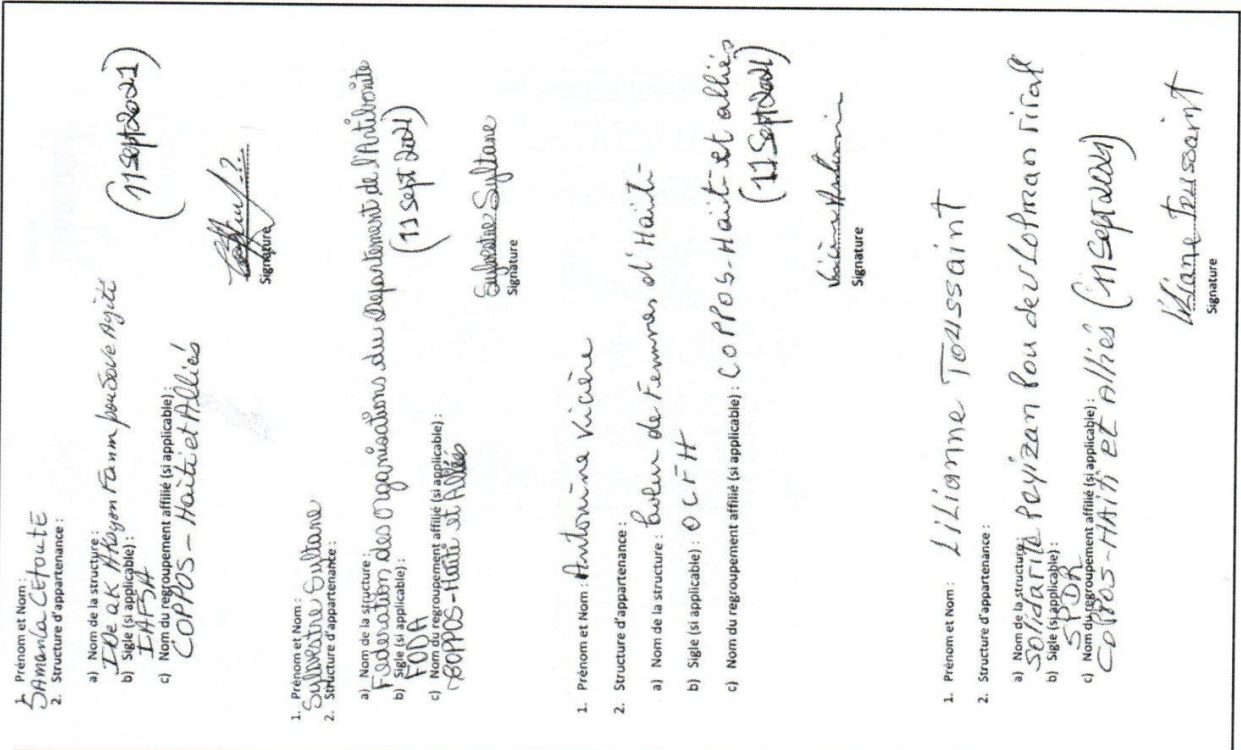 1. Prénom et Nom :
Samanta CEtoutE
2. Structure d'appartenance :
a) Nom de la structure :
IDe ak AKsyon Fanm pou Sove Ayiti
b) Sigle (si applicable) :
IAFSA
c) Nom du regroupement affilié (si applicable) :
COPPOS – Haïti et Alliés
(11 sept 2021)
Signature
1. Prénom et Nom :
Sylvestre Syltane
2. Structure d'appartenance :
a) Nom de la structure :
Federation des organisations du Departement de l'Artibonite
b) Sigle (si applicable) :
FODA
c) Nom du regroupement affilié (si applicable) :
COPPOS-Haïti et Alliés
(11 sept 2021)
Sylvestre Syltane
Signature
1. Prénom et Nom : Antonine Vicière
2. Structure d'appartenance :
a) Nom de la structure : de Femmes d'Haïti
b) Sigle (si applicable) : OCFH
c) Nom du regroupement affilié (si applicable) : COPPOS-Haïti et alliés
(11 Sept 2021)
Signature
1. Prénom et Nom : Lilianne Toussaint
2. Structure d'appartenance :
a) Nom de la structure :
Solidarite Peyizan Pou devLopman riral
b) Sigle (si applicable) :
SPDR
c) Nom du regroupement affilié (si applicable) :
COPPOS-HAÏti et Alliés (11 Sept 2021)
Liliane Toussaint
Signature